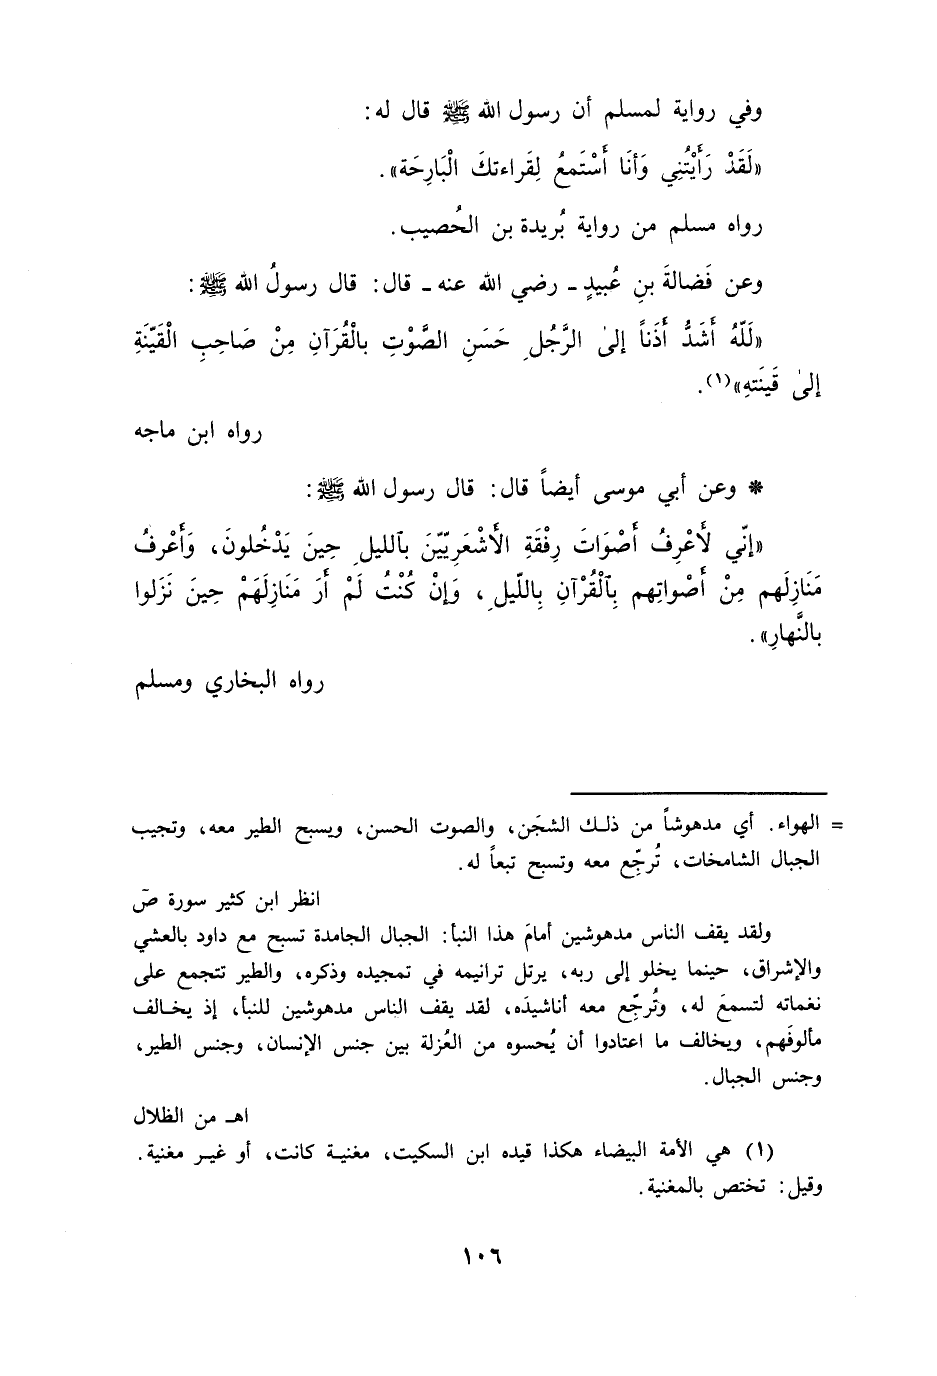 وفي رواية لمسلم أن رسول الله ﷺ قال له:
«لَقَدْ رَأَيْتُنِي وَأنَا أَسْتَمعُ لِقَراءتكَ الْبَارِحَة».
رواه مسلم من رواية بُريدة بن الحُصيب.
وعن فَضالةَ بنِ عُبيدٍ ـ رضي الله عنه ـ قال: قال رسولُ الله ﷺ:
«لَلّهُ أَشَدُّ أذَناً إلىٰ الرَّجُلِ حَسَنِ الصَّوْتِ بالْقُرَآنِ مِنْ صَاحِبِ الْقَيِّنَةِ
إلىٰ قَينَتهِ»(١).
رواه ابن ماجه
* وعن أبي موسى أيضاً قال: قال رسول الله ﷺ:
«إنّي لَأَعْرِفُ أَصْوَاتَ رِفْقَةِ الأَشْعَرِيّيّنَ بٱلليلِ حِينَ يَدْخُلونَ، وَأَعْرفُ
مَنَازِلَهم مِنْ أَصْواتِهم بِٱلْقُرْآنِ بِاللّيلِ، وَإنْ كُنْتُ لَمْ أَرَ مَنَازِلَهَمْ حِينَ نَزَلوا
بالنَّهارِ».
رواه البخاري ومسلم
= الهواء. أي مدهوشاً من ذلك الشجَن، والصوت الحسن، ويسبح الطير معه، وتجيب
الجبال الشامخات، تُرجِّع معه وتسبح تبعاً له.
انظر ابن كثير سورة صٓ
ولقد يقف الناس مدهوشين أمامَ هذا النبأ: الجبال الجامدة تسبح مع داود بالعشي
والإشراق، حينما يخلو إلى ربه، يرتل ترانيمه في تمجيده وذكره، والطير تتجمع على
نغماته لتسمعَ له، وتُرجِّع معه أناشيدَه، لقد يقف الناس مدهوشين للنبأ، إذ يخالف
مألوفَهم، ويخالف ما اعتادوا أن يُحسوه من العُزلة بين جنس الإنسان، وجنس الطير،
وجنس الجبال.
اهـ من الظلال
(١) هي الأمة البيضاء هكذا قيده ابن السكيت، مغنية كانت، أو غير مغنية.
وقيل: تختص بالمغنية.
١٠٦